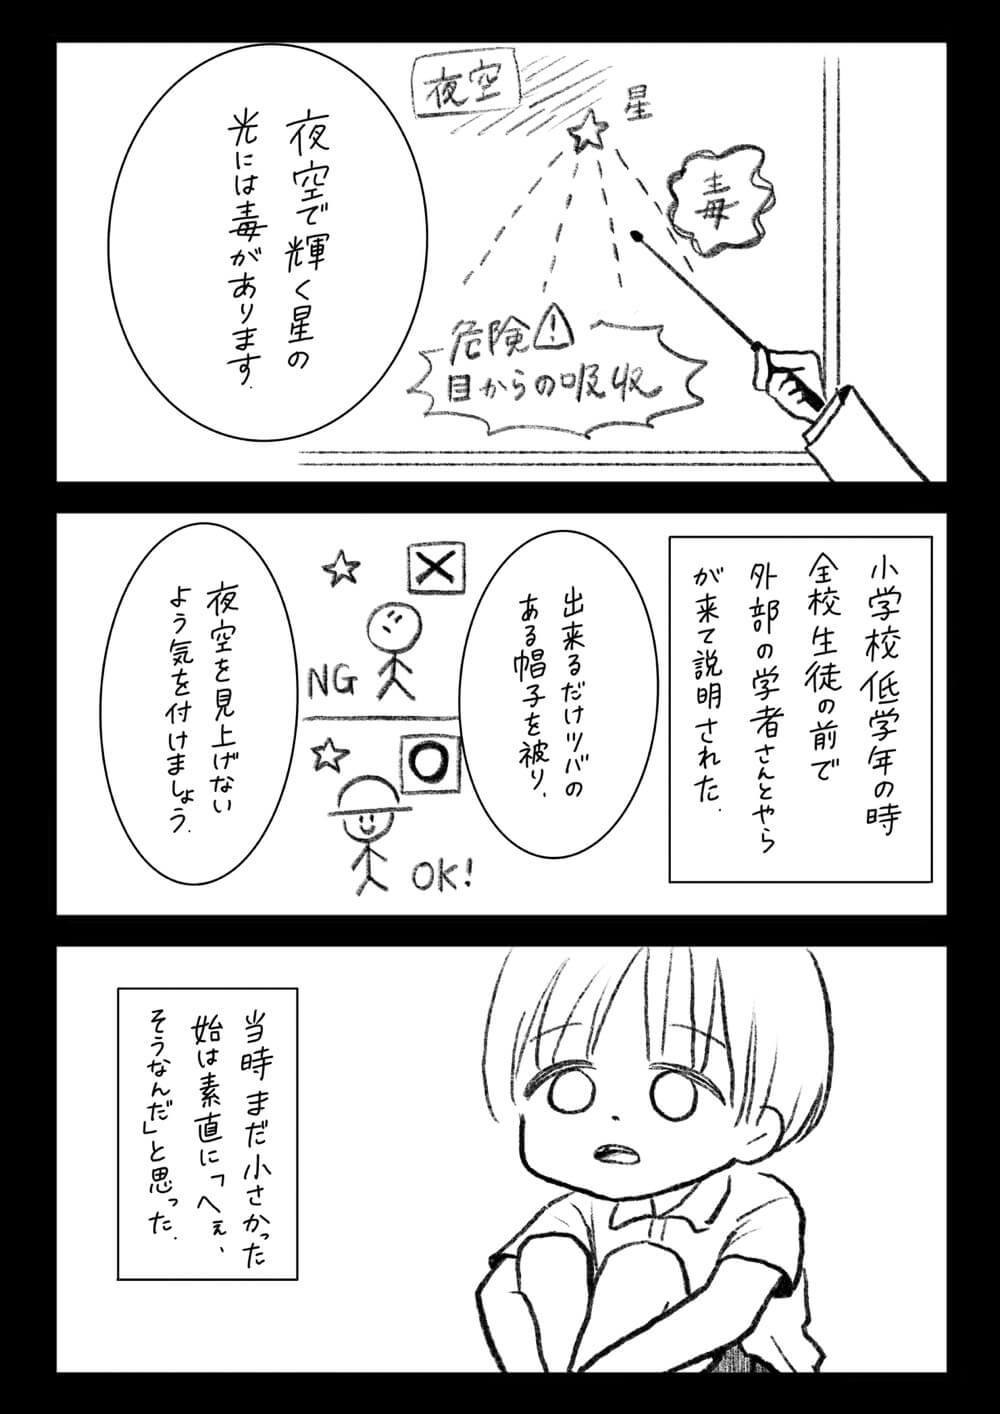 夜空
星
毒
危険⚠
目からの吸収
夜空で輝く星の
光には毒があります.
小学校低学年の時
全校生徒の前で
外部の学者さんとやら
が来て説明された.
出来るだけツバの
ある帽子を被り.
NG
OK!
夜空を見上げない
よう気を付けましょう.
当時まだ小さかった
始は素直に「へぇ、
そうなんだ」と思った.